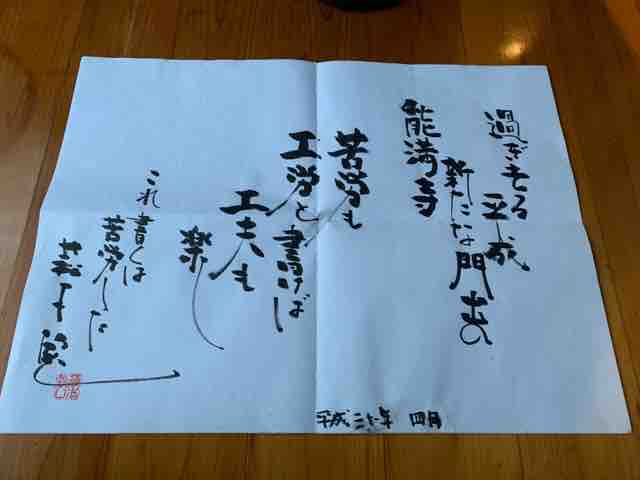 過ぎ去る
平成
新たな門出の
能満寺
苦労も
工労と書けば
工夫も
楽し
これ書くは
苦労した
平成三十一年 四月